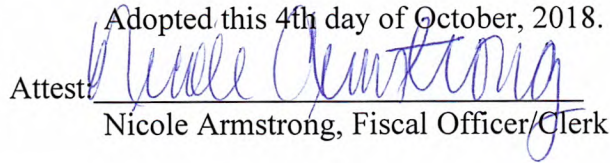 Adopted this 4th day of October, 2018.
Attest: Nicole Armstrong
Nicole Armstrong, Fiscal Officer/Clerk